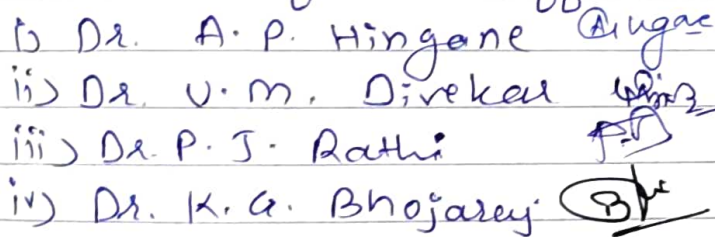 i) Dr. A. P. Hingane
ii) Dr. V. M. Divekar
iii) Dr. P. J. Rathi
iv) Dr. K. G. Bhojarey